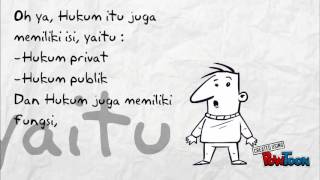 Oh ya, Hukum itu juga
memiliki isi, yaitu :
-Hukum privat
-Hukum publik
Dan Hukum juga memiliki
fungsi,
yaitu
CREATED USING
POWTOON